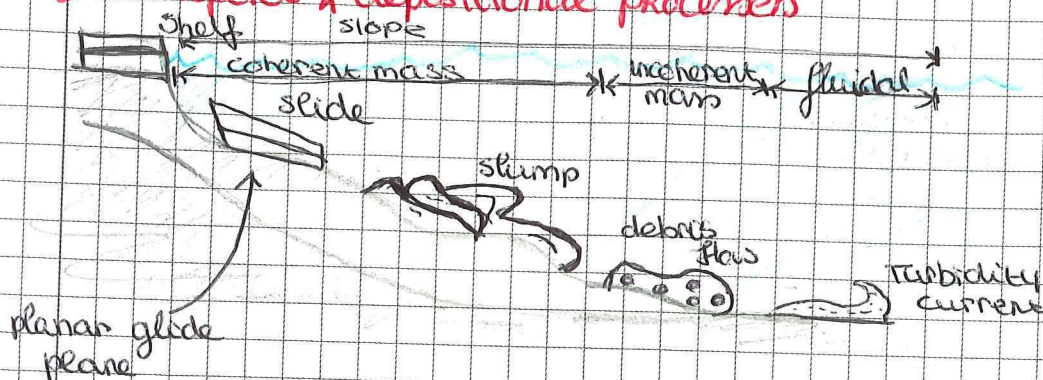 depositional processes
shelf
slope
coherent mass
incoherent
mass
fluidal
slide
slump
debris
flow
Turbidity
current
planar glide
plane